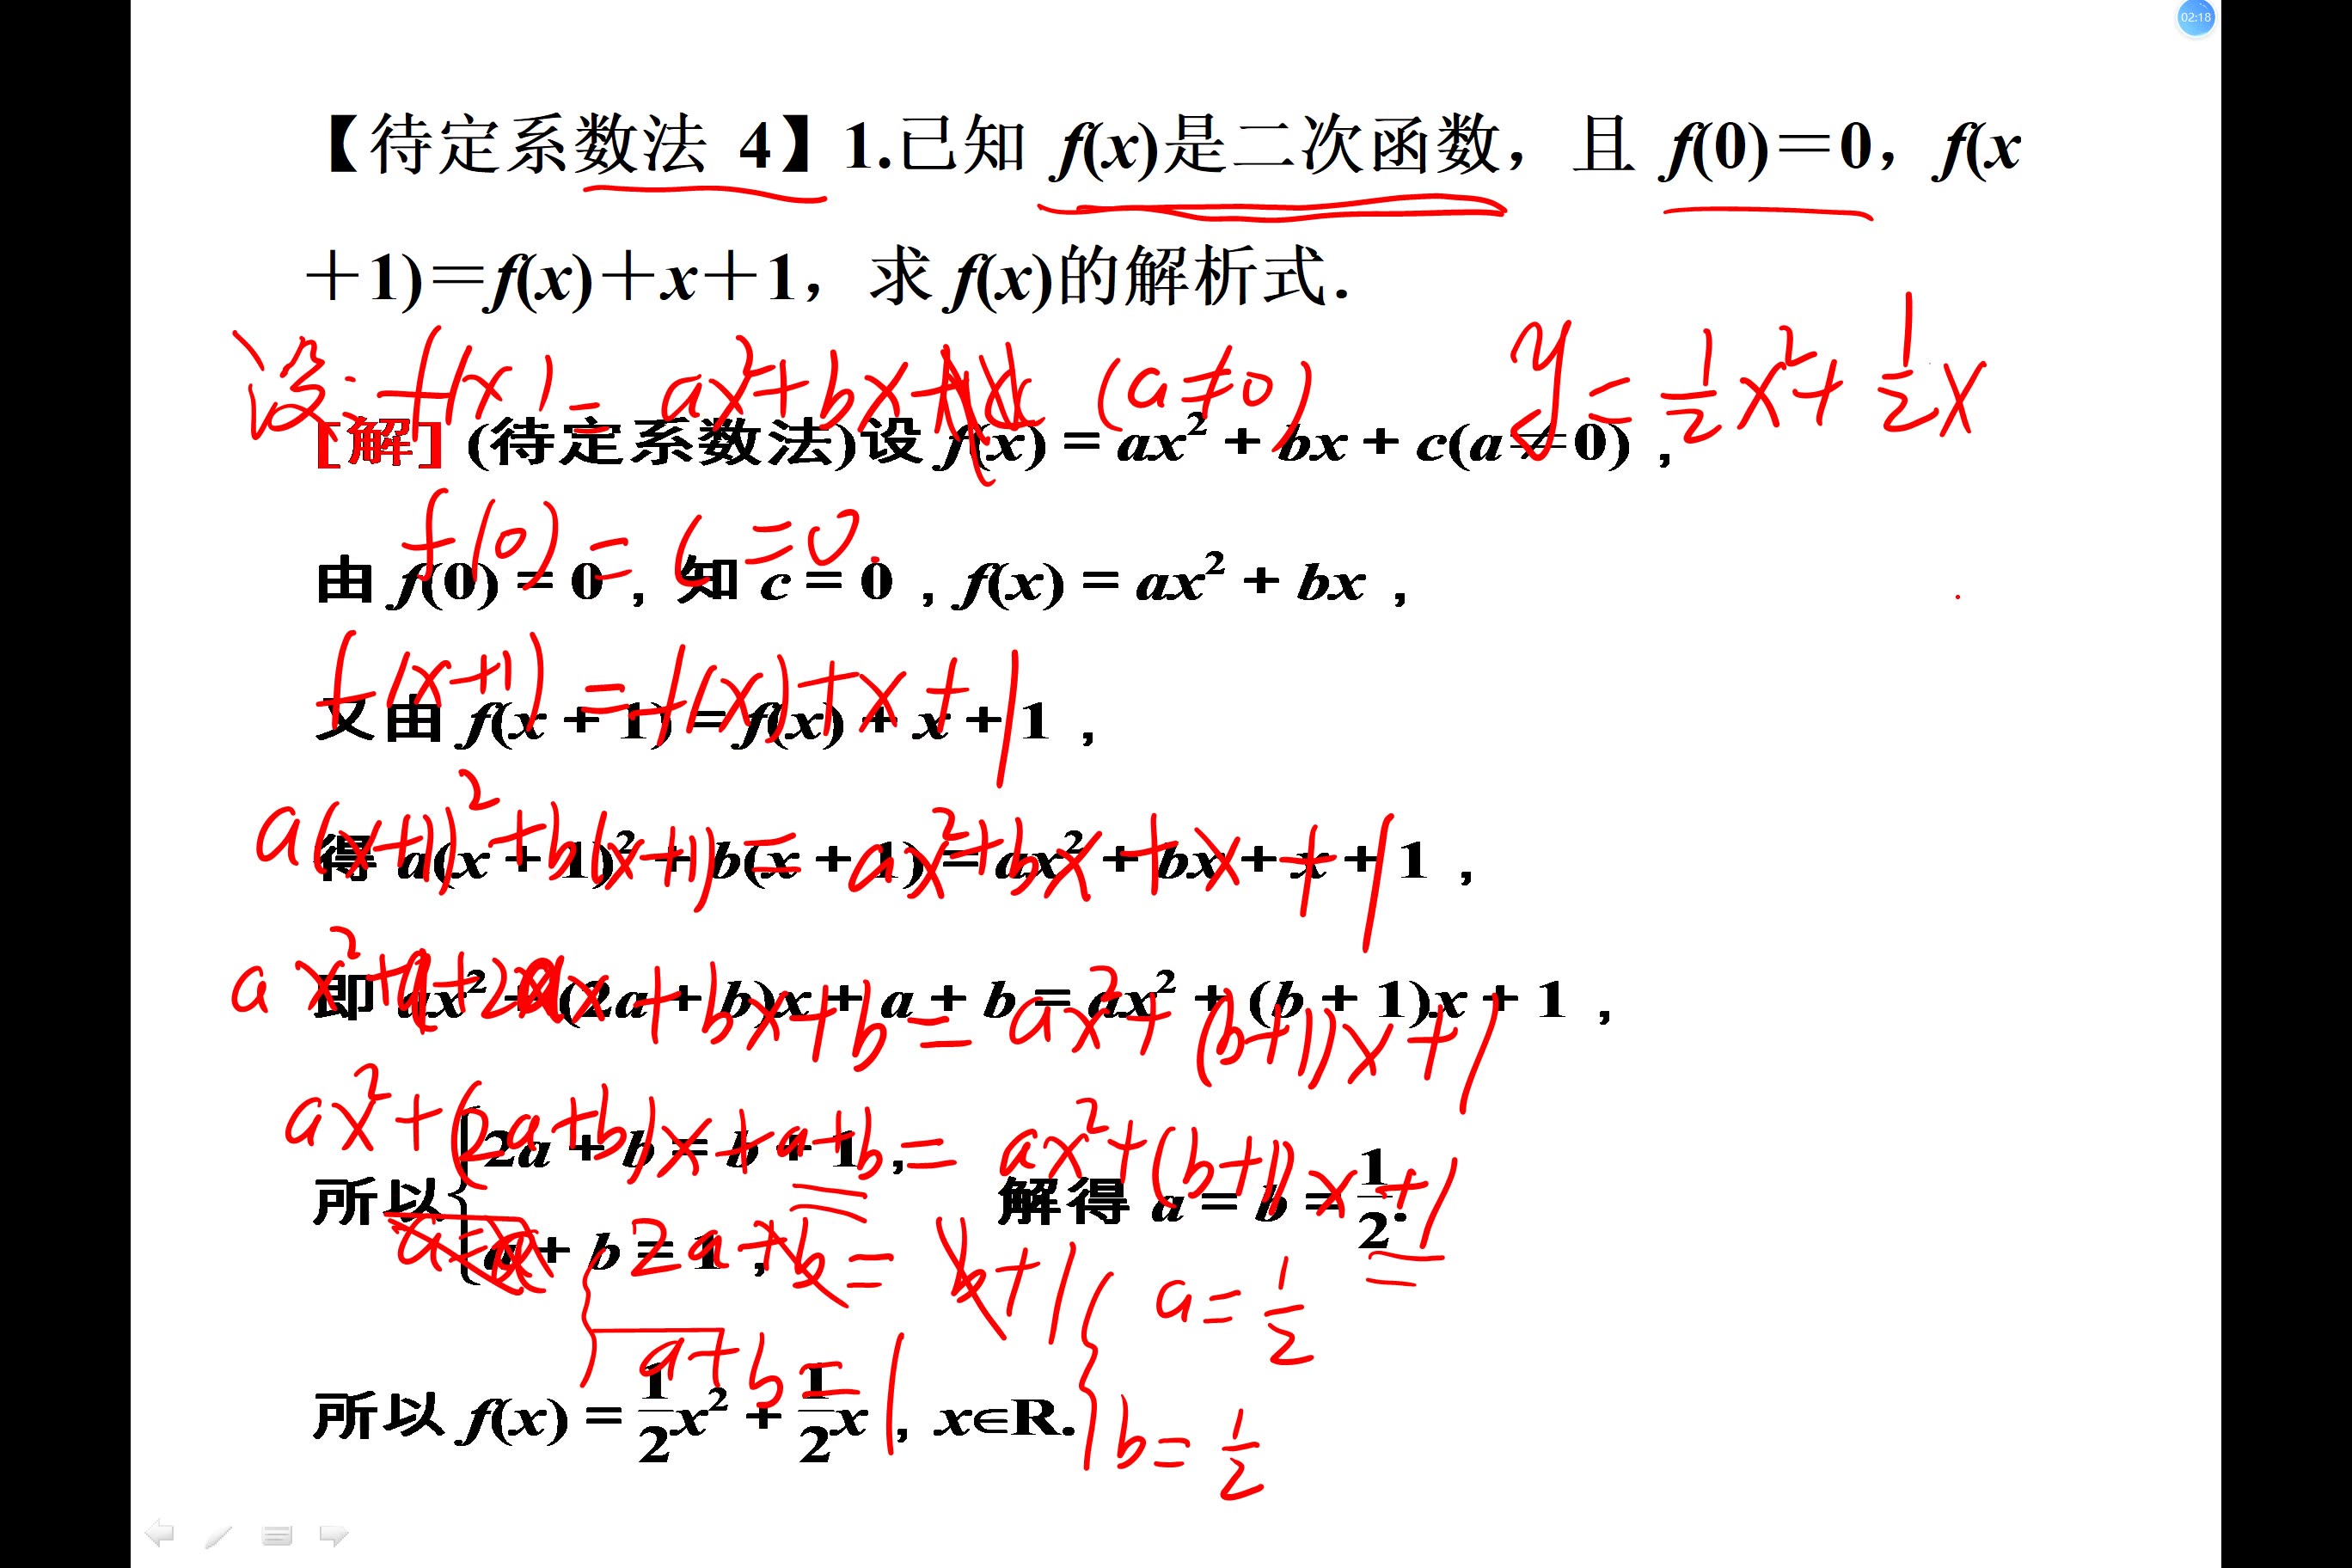 02:18
【待定系数法 4】1.已知 f(x)是二次函数，且 f(0)=0，f(x
+1)=f(x)+x+1，求 f(x)的解析式.
设: f(x)=ax²+bx+c (a≠0) y=½x²+½x
[解] (待定系数法)设 f(x)=ax²+bx+c(a≠0)，
f(0)=c=0.
由 f(0)=0，知 c=0，f(x)=ax²+bx，
f(x+1)=f(x)+x+1
又由 f(x+1)=f(x)+x+1，
a(x+1)²+b(x+1)=ax²+bx+x+1
得 a(x+1)²+b(x+1)=ax²+bx+x+1，
ax²+a+2ax+bx+b=ax²+(b+1)x+1
即 ax²+(2a+b)x+a+b=ax²+(b+1)x+1，
ax²+(2a+b)x+a+b=ax²+(b+1)x+1
所以{2a+b=b+1，a+b=1， 解得 a=b=1/2.
2a+b=b+1 a=½
a+b=1 b=½
所以 f(x)=1/2x²+1/2x，x∈R.